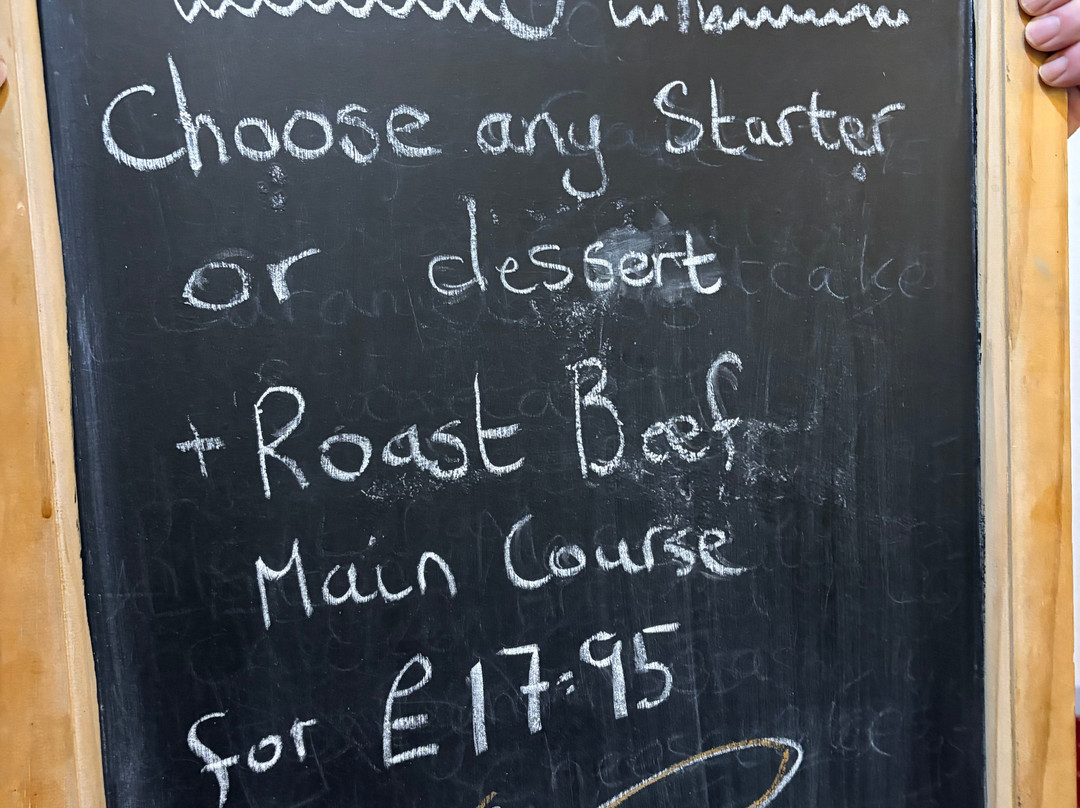 Choose any Starter
or dessert
+ Roast Beef
Main Course
for £17:95